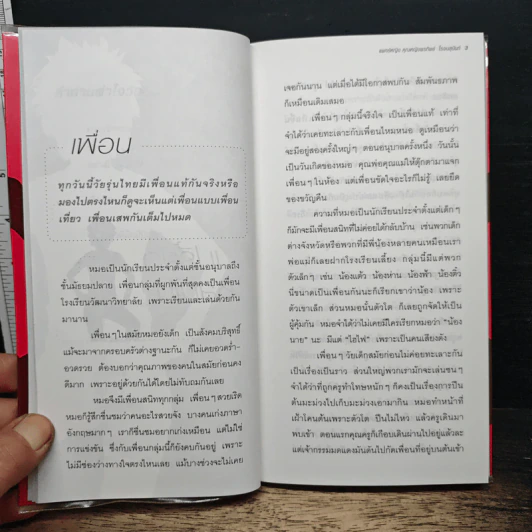 เพื่อน
ทุกวันนี้วัยรุ่นไทยมีเพื่อนแท้กันจริงหรือ
มองไปตรงไหนก็ดูจะเห็นแต่เพื่อนแบบเพื่อน
เที่ยว เพื่อนเสพกันเต็มไปหมด
หมอเป็นนักเรียนประจำตั้งแต่ชั้นอนุบาลถึง
ชั้นมัธยมปลาย เพื่อนกลุ่มที่ผูกพันที่สุดคงเป็นเพื่อน
โรงเรียนวัฒนาวิทยาลัย เพราะเรียนและเล่นด้วยกัน
มานาน
เพื่อนๆ ในสมัยหมอยังเด็ก เป็นสังคมบริสุทธิ์
แม้จะมาจากครอบครัวต่างฐานะกัน ก็ไม่เคยอวดร่ำ-
อวดรวย ต้องบอกว่าคุณภาพของคนในสมัยก่อนคง
ดีมาก เพราะอยู่ด้วยกันได้โดยไม่ทับถมกันเลย
หมอจึงมีเพื่อนสนิททุกกลุ่ม เพื่อนๆ สวยเริด
หมอก็รู้สึกชื่นชมว่าคนอะไรสวยจัง บางคนเก่งภาษา
อังกฤษมากๆ เราก็ชื่นชมอยากเก่งเหมือน แต่ไม่ใช่
การแข่งขัน ซึ่งกับเพื่อนกลุ่มนี้ก็ยังคบกันอยู่ เพราะ
ไม่มีช่องว่างทางใจตรงไหนเลย แม้บางช่วงจะไม่เคย
เจอกันนาน แต่เมื่อได้มีโอกาสพบกัน สัมพันธภาพ
ก็เหมือนเดิมเสมอ
เพื่อนๆ กลุ่มนี้จริงใจ เป็นเพื่อนแท้ เท่าที่
จำได้ว่าเคยทะเลาะกับเพื่อนไหมหนอ ดูเหมือนว่า
จะมีอยู่สองครั้งใหญ่ๆ ตอนอนุบาลครั้งหนึ่ง วันนั้น
เป็นวันเกิดของหมอ คุณพ่อคุณแม่ให้ตุ๊กตามาแจก
เพื่อนๆ ในห้อง แต่เพื่อนขัดใจอะไรก็ไม่รู้ เลยยึด
ของขวัญคืน
ความที่หมอเป็นนักเรียนประจำตั้งแต่เด็กๆ
ก็มักจะมีเพื่อนสนิทที่ไม่ค่อยได้กลับบ้าน เช่นพวกเด็ก
ต่างจังหวัดหรือพวกที่มีพี่น้องหลายคนเหมือนเรา
พ่อแม่ก็เลยฝากโรงเรียนเลี้ยง กลุ่มนี้มีแต่พวก
ตัวเล็กๆ เช่น น้องแต้ว น้องห่าน น้องฟ้า น้องติ๋ว
นี่ขนาดเป็นเพื่อนกันนะก็เรียกเขาว่าน้อง เพราะ
ตัวเขาเล็ก ส่วนหมอนั้นตัวโต ก็เลยถูกจัดให้เป็น
ผู้คุ้มกัน หมอจำได้ว่าไม่เคยมีใครเรียกหมอว่า "น้อง
นาย" นะ มีแต่ "ไฮไฟ" เพราะเป็นคนเสียงดัง
เพื่อนๆ วัยเด็กสมัยก่อนไม่ค่อยทะเลาะกัน
เป็นเรื่องเป็นราว ส่วนใหญ่พวกเรามักจะเล่นซนๆ
จำได้ว่าที่ถูกครูทำโทษหนักๆ ก็คงเป็นเรื่องการปีน
ต้นมะม่วงไปเก็บมะม่วงเอามากิน หมอทำหน้าที่
เฝ้าโคนต้นเพราะตัวโต ปีนไม่ไหว แล้วครูเดินมา
พบเข้า ตอนแรกคุณครูก็เกือบเดินผ่านไปอยู่แล้วละ
แต่เจ้ากรรมมดแดงมันดันไปกัดเพื่อนที่อยู่บนต้นเข้า